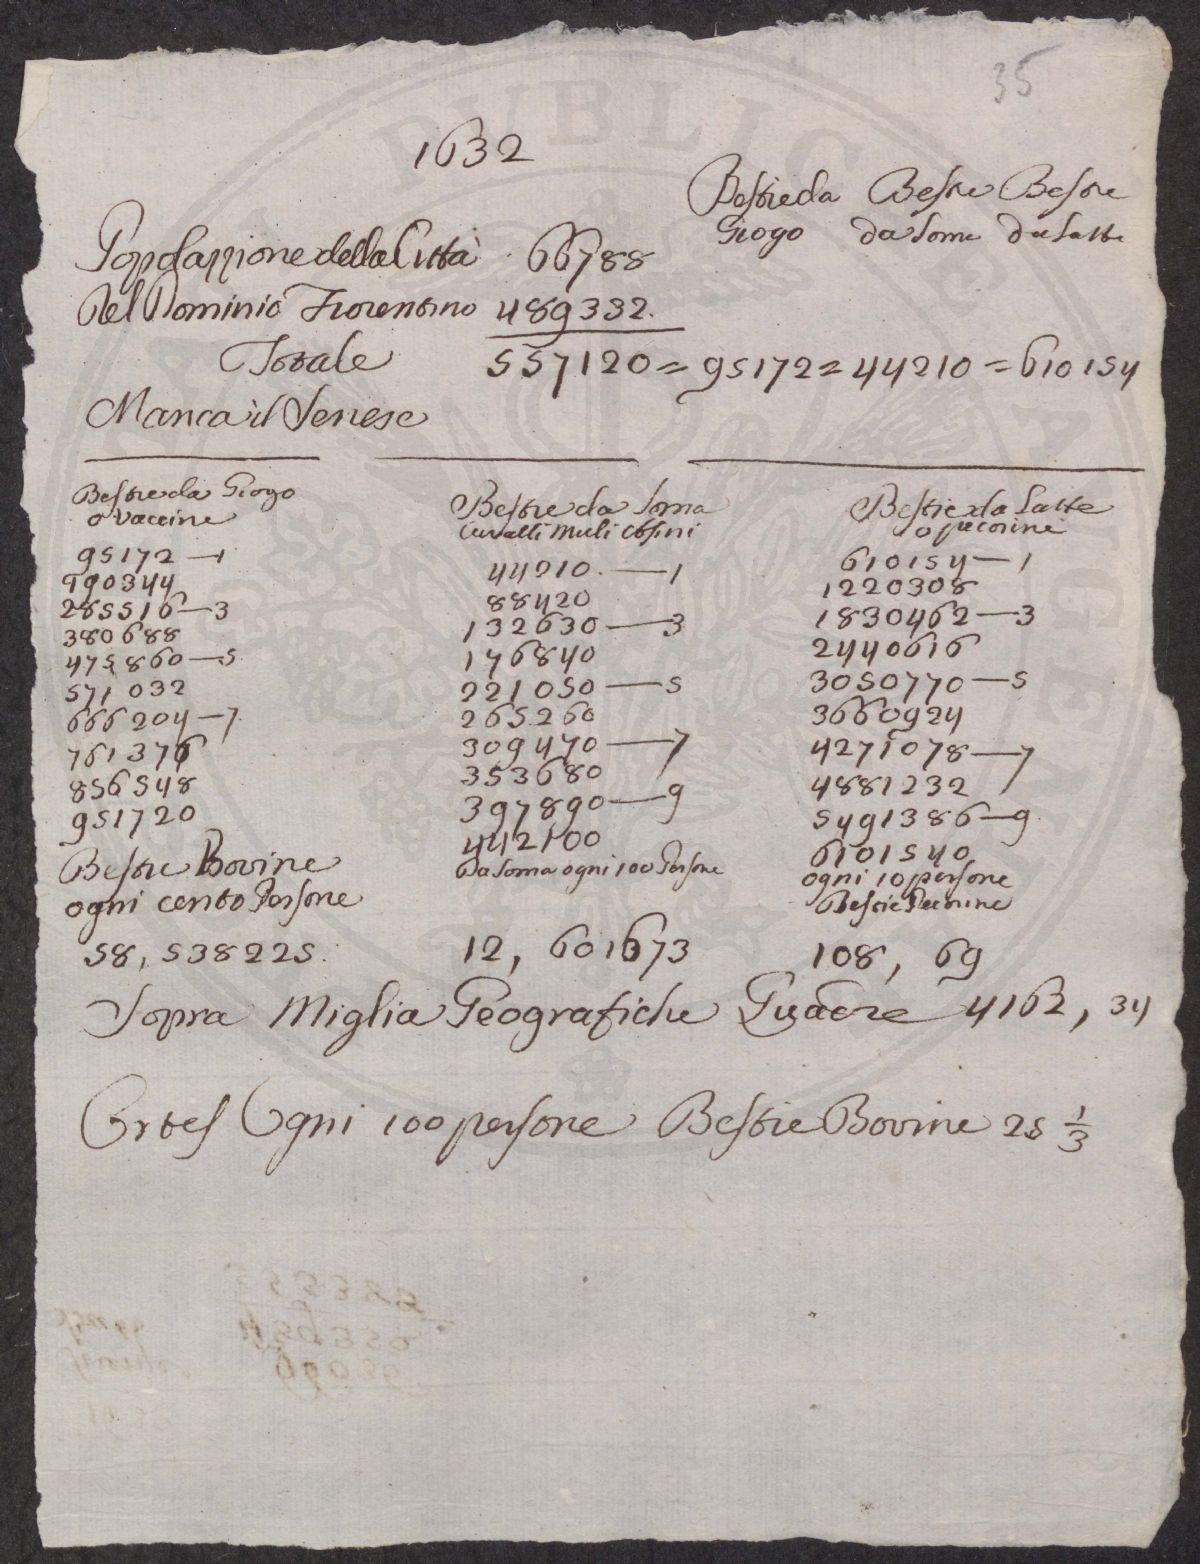 35
1632
Bestie da Bestie Bestie
Giogo da Some da Latte
Popolazzione della Città 66788
Del Dominio Fiorentino 489332.
Totale 557120 = 95172 = 44210 = 610154
Manca il Senese
Bestie da Giogo
o vaccine
95172—1
190344
285516—3
380688
475860—5
571032
666204—7
761376
856548
951720
Bestie Bovine
ogni cento Persone
58, 538225.
Bestie da Soma
Cavalli Muli Asini
44210.—1
88420
132630—3
176840
221050—5
265260
309470—7
353680
397890—9
442100
Da Soma ogni 100 Persone
12, 601673
Bestie da Latte
o pecorine
610154—1
1220308
1830462—3
2440616
3050770—5
3660924
4271078—7
4881232
5491386—9
6101540
ogni 10 persone
Bestie Pecorine
108, 69
Sopra Miglia Geografiche Quadre 4162, 34
Ortes Ogni 100 persone Bestie Bovine 25 1/3